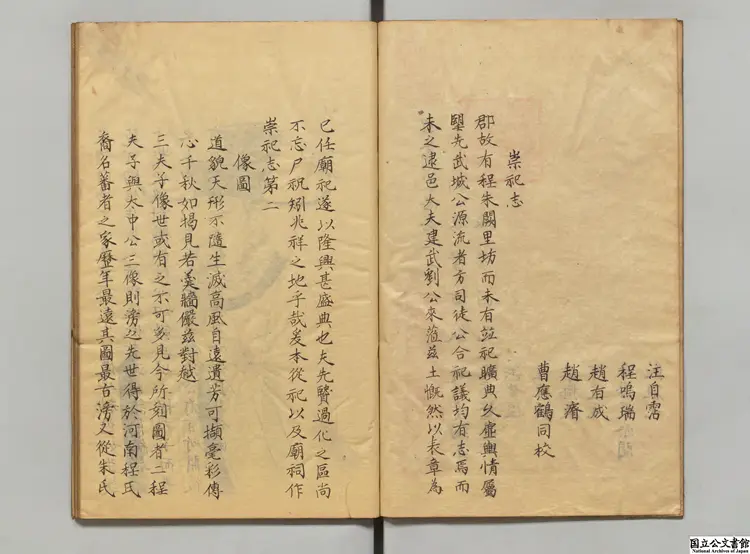 汪自霑
程鳴瑞
趙有成
趙濬
曹應鶴同校
崇祀志
郡故有程朱闕里坊而未有竝祀曠典久虛輿情屬
朢先武城公源流者方司徒公合祀議均有志焉而
未之逮邑大夫建武劉公來蒞兹土慨然以表章為
已任廟祀遂以隆興甚盛典也夫先賢過化之區尚
不忘尸祝矧兆祥之地乎哉爰本從祀以及廟祠作
崇祀志第二
像圖
道貌天形不隨生滅高風自遠遺芳可擷毫彩傳
心千秋如揭見若羹牆儼兹對越
三夫子像世或有之不可多見今所刻圖者二程
夫子與太中公三像則滂之先世得於河南程氏
裔名蕃者之家歷年最遠其圖最古滂又從朱氏
国立公文書館
National Archives of Japan